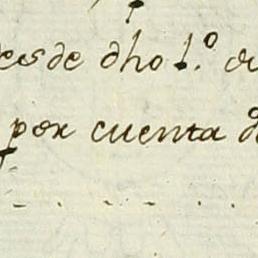 desde dho 1.º
por cuenta